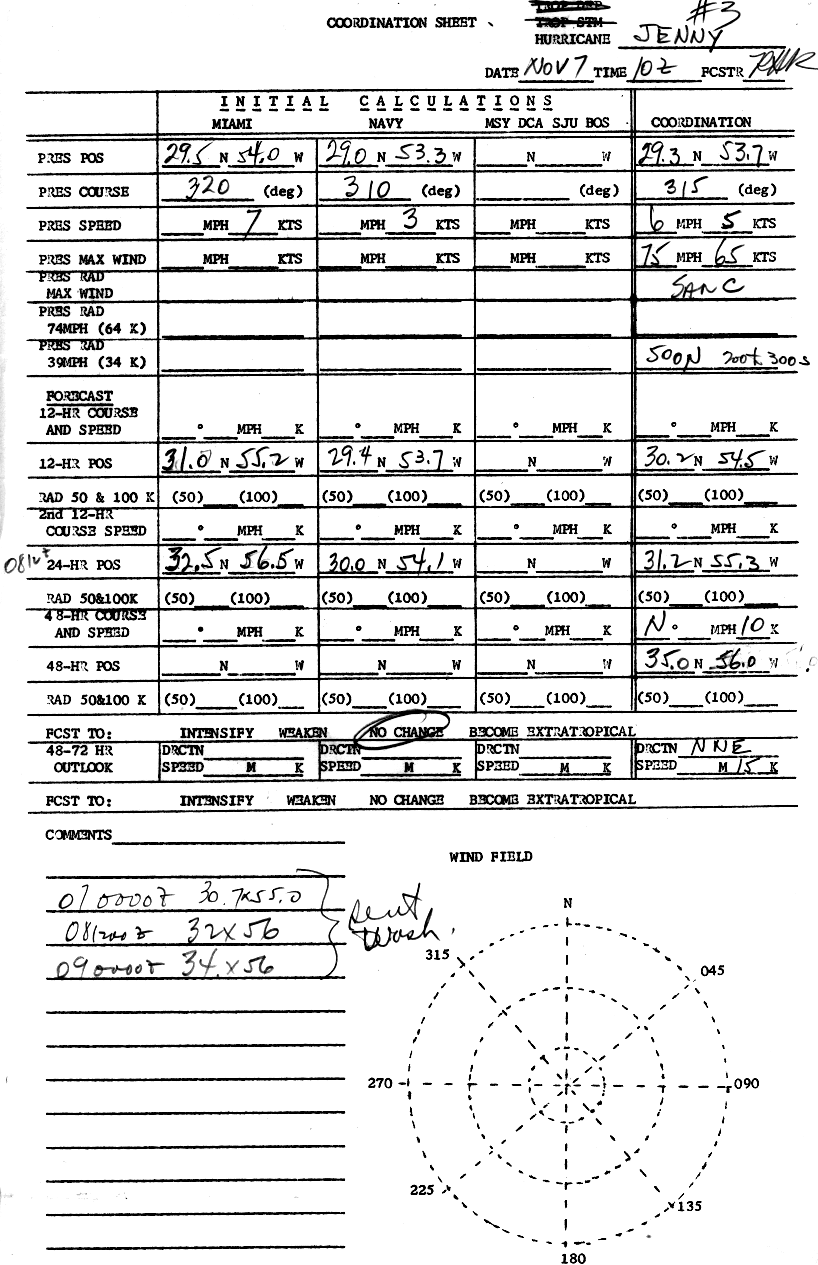 #3
TROP DEP
COORDINATION SHEET TROP STM
HURRICANE JENNY
DATE NOV 7 TIME 10Z FCSTR
INITIAL CALCULATIONS
MIAMI NAVY MSY DCA SJU BOS COORDINATION
PRES POS 29.5 N 54.0 W 29.0 N 53.3 W N W 29.3 N 53.7 W
PRES COURSE 320 (deg) 310 (deg) (deg) 315 (deg)
PRES SPEED MPH 7 KTS MPH 3 KTS MPH KTS 6 MPH 5 KTS
PRES MAX WIND MPH KTS MPH KTS MPH KTS 75 MPH 65 KTS
PRES RAD
MAX WIND SAN C
PRES RAD
74MPH (64 K)
PRES RAD
39MPH (34 K) 500N 200 300 S
FORECAST
12-HR COURSE
AND SPEED ° MPH K ° MPH K ° MPH K ° MPH K
12-HR POS 31.0 N 55.2 W 29.4 N 53.7 W N W 30.2 N 54.5 W
RAD 50 & 100 K (50) (100) (50) (100) (50) (100) (50) (100)
2nd 12-HR
COURSE SPEED ° MPH K ° MPH K ° MPH K ° MPH K
24-HR POS 32.5 N 56.5 W 30.0 N 54.1 W N W 31.2 N 55.3 W
RAD 50&100K (50) (100) (50) (100) (50) (100) (50) (100)
48-HR COURSE
AND SPEED ° MPH K ° MPH K ° MPH K N ° MPH 10 K
48-HR POS N W N W N W 35.0 N 56.0 W
RAD 50&100 K (50) (100) (50) (100) (50) (100) (50) (100)
FCST TO: INTENSIFY WEAKEN NO CHANGE BECOME EXTRATROPICAL
48-72 HR DRCTN DRCTN DRCTN DRCTN NNE
OUTLOOK SPEED M K SPEED M K SPEED M K SPEED M 15 K
FCST TO: INTENSIFY WEAKEN NO CHANGE BECOME EXTRATROPICAL
COMMENTS
WIND FIELD
070000Z 30.7x55.0
081200Z 32x56
090000Z 34.x56
Sent
Wash.
N
315
045
270
090
225
135
180